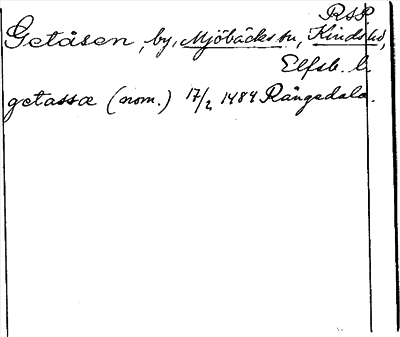 RSP
Getåsen, by, Mjöbäcks sn, Kinds hd,
Elfsb. l.
getassæ (nom.) 17/2 1484 Rångedala.